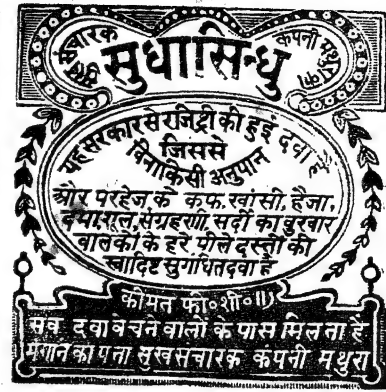 सुख संचारक
कंपनी मथुरा का
सुधासिन्धु
यह सरकार से रजिष्ट्री की हुई दवा है
जिससे
विना किसी अनुपान
और परहेज के कफ, खांसी, हैजा,
दमा, शूल, संग्रहणी, सर्दी का बुखार
बालकों के हरे पीले दस्तों की
स्वादिष्ट सुगंधित दवा है
कीमत फी॰ शी॰ ॥)
सब दवा बेचने वालों के पास मिलता है
मंगाने का पता सुख संचारक कंपनी मथुरा